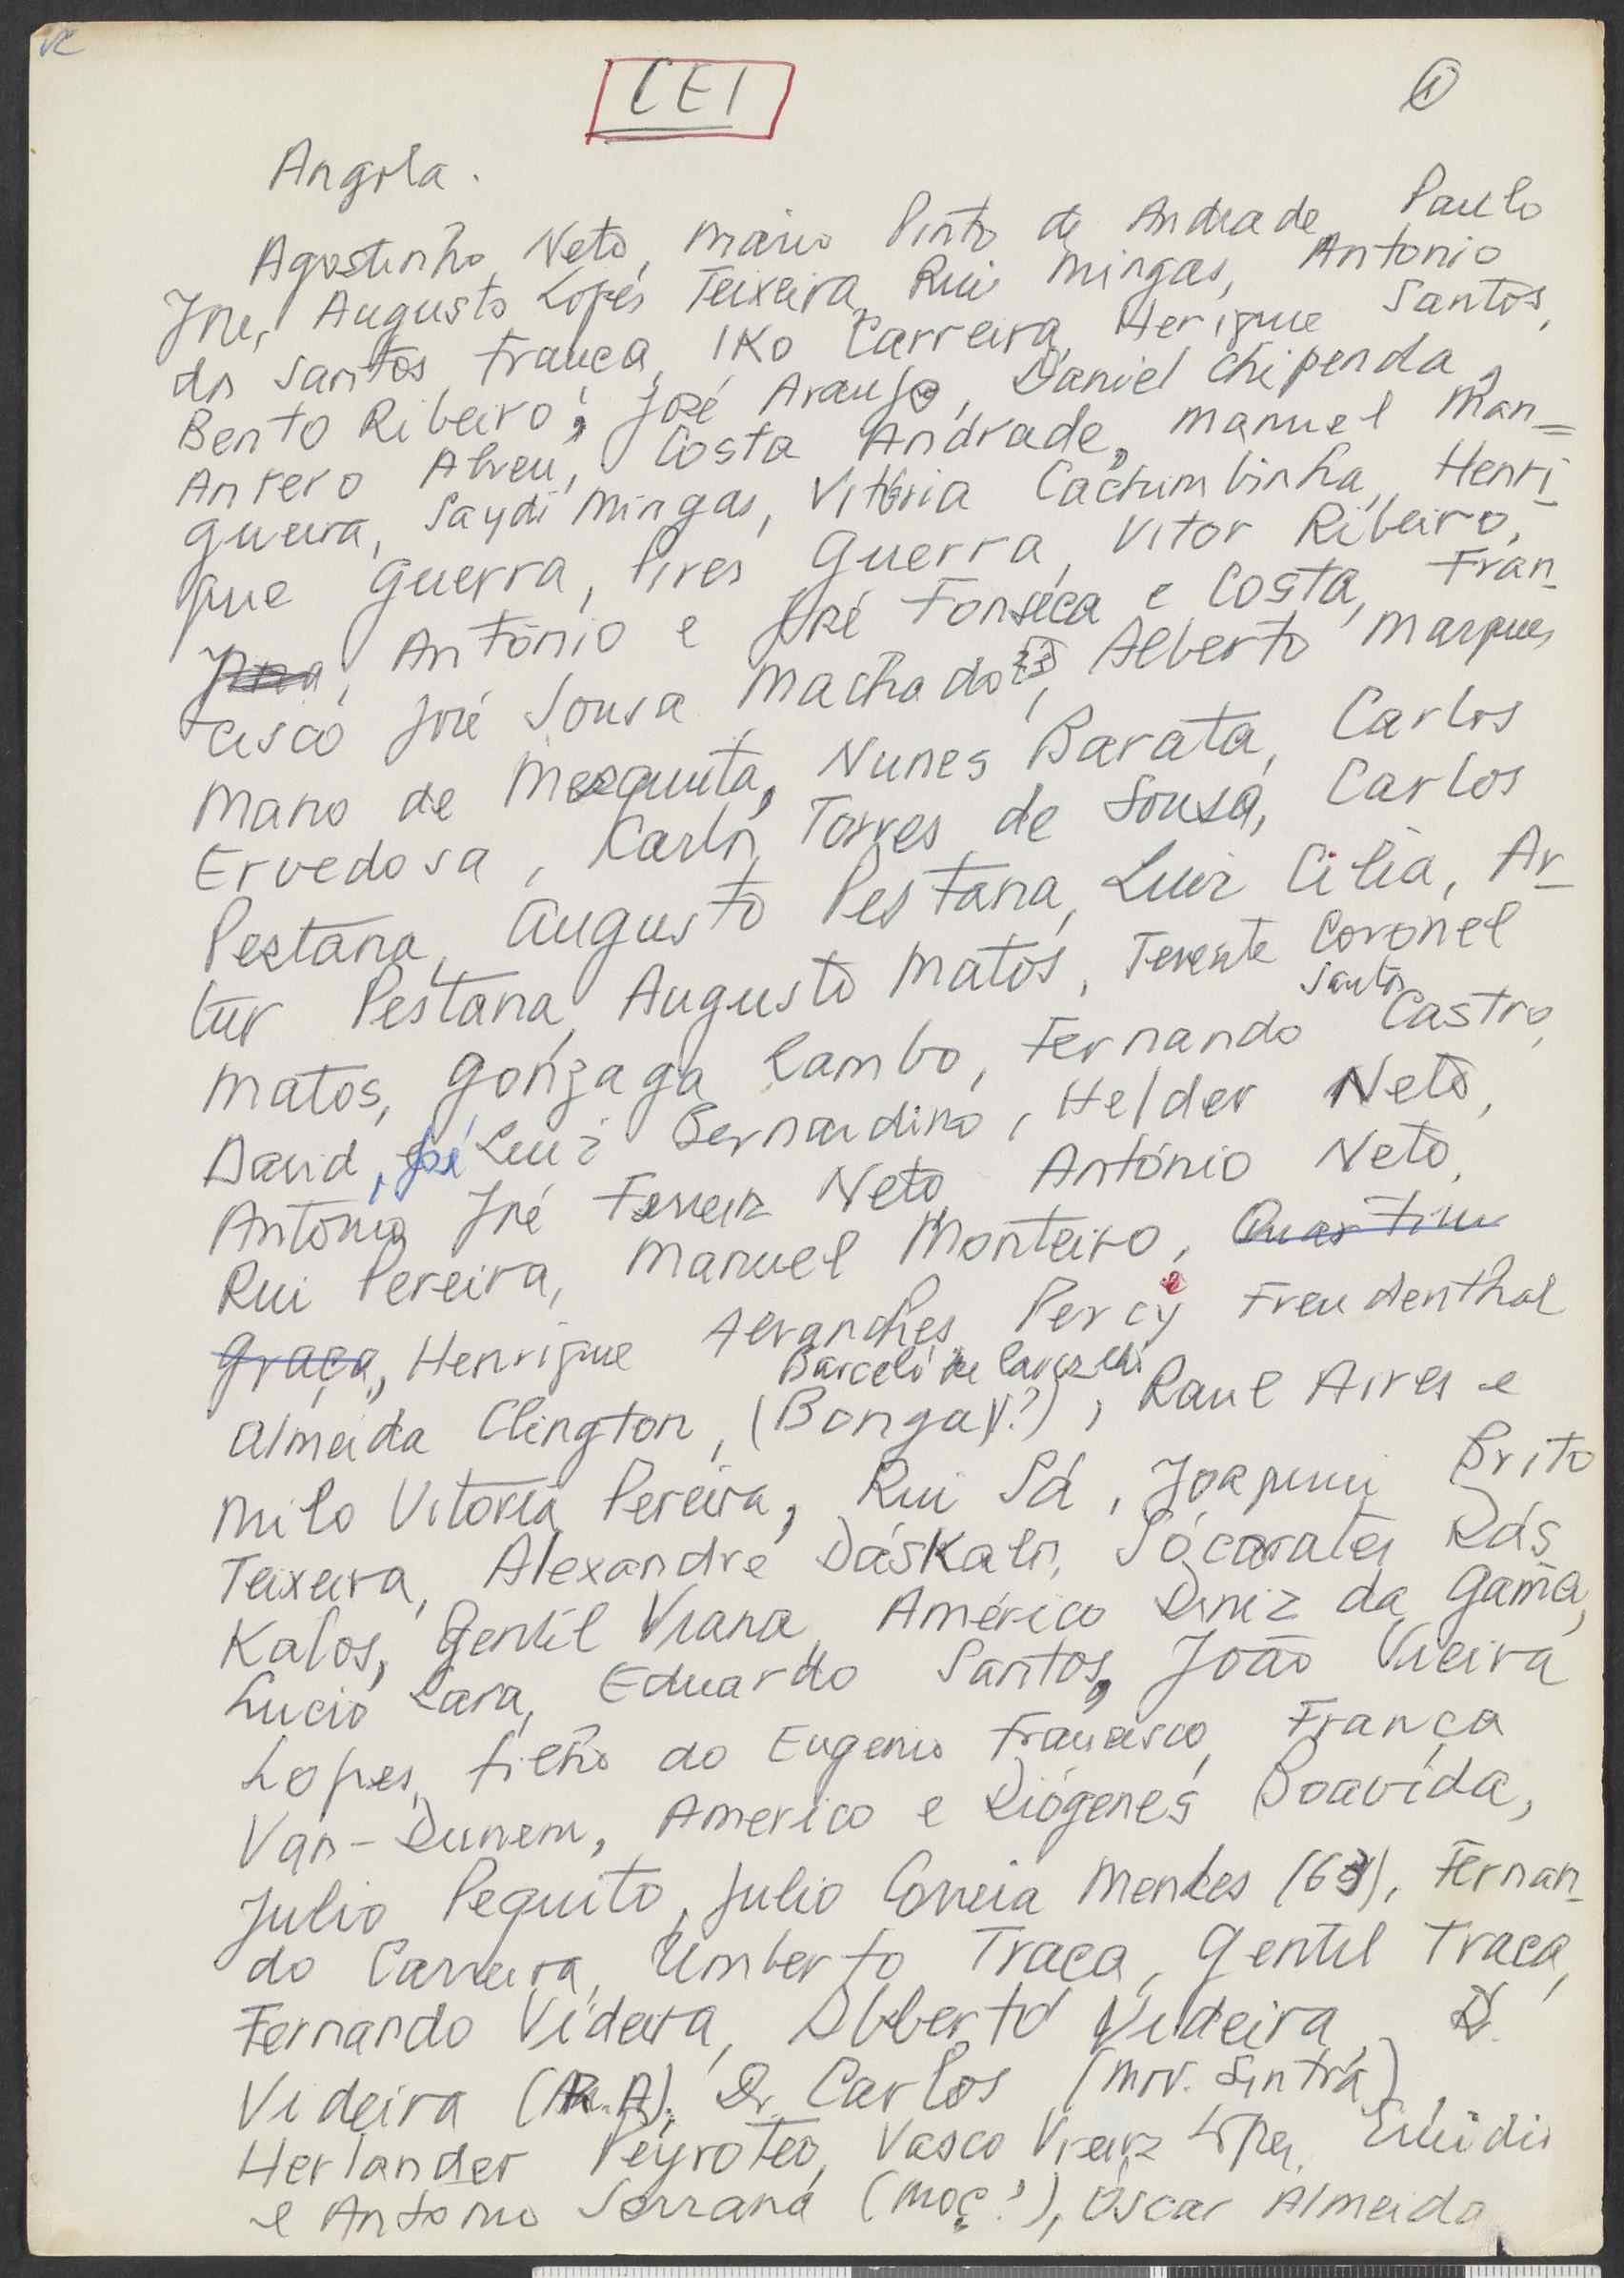 CEI
1
Angola.
Agostinho Neto, Mário Pinto de Andrade, Paulo
Jorge, Augusto Lopes Teixeira, Rui Mingas, Antonio
dos Santos França, IKo Carreira, Herique Santos,
Bento Ribeiro, José Araujo, Daniel Chipenda,
Antero Abreu, Costa Andrade, Manuel Man=
gueira, Saydi Mingas, Vitória Cachumbinha, Henri-
que Guerra, Pires Guerra, Vitor Ribeiro,
António e José Fonseca e Costa, Fran-
cisco José Sousa Machado, Alberto Marques
Mano de Mesquita, Nunes Barata, Carlos
Ervedosa, Carlos Torres de Sousa, Carlos
Pestana, Augusto Pestana, Luiz Cilia, Ar-
tur Pestana, Augusto Matos, Tenente Coronel
Matos, Gonzaga Lambo, Fernando Santos Castro,
David, José Luiz Bernardino, Helder Neto,
Antonio José Ferreira Neto, António Neto,
Rui Pereira, Manuel Monteiro, Quartim
Graça, Henrique Abranches, Percy Freudenthal
Almeida Clington, (Bonga)(?), Barceló de Carvalho
Raul Aires e
Milo Vitoria Pereira, Rui Sá, Joaquim Brito
Teixeira, Alexandre Dáskalos, Sócarates Dás
Kalos, Gentil Viana, Américo Diniz da Gama,
Lucio Lara, Eduardo Santos, João Vieira
Lopes, filho do Eugenio Francisco, França
Van-Dunem, Americo e Diógenes Boavida,
Julio Pequito, Julio Correia Mendes (63), Fernan-
do Carreira, Umberto Traça, Gentil Traça,
Fernando Videira, Alberto Videira, D.
Videira (M.A). Dr Carlos (Mov. Sintra),
Herlander Peyroteo, Vasco Vieira Lopes,
e Antonio Serrana (Moç?), Oscar Almeida